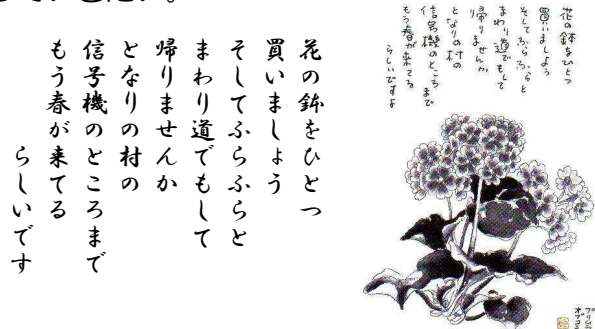 ていきたい。
花の鉢をひとつ
買いましょう
そしてふらふらと
まわり道でもして
帰りませんか
となりの村の
信号機のところまで
もう春が来てる
らしいです
花の鉢をひとつ
買いましょう
そしてふらふらと
まわり道でもして
帰りませんか
となりの村の
信号機のところまで
もう春が来てる
らしいですよ
プリムラ
オブコニカ